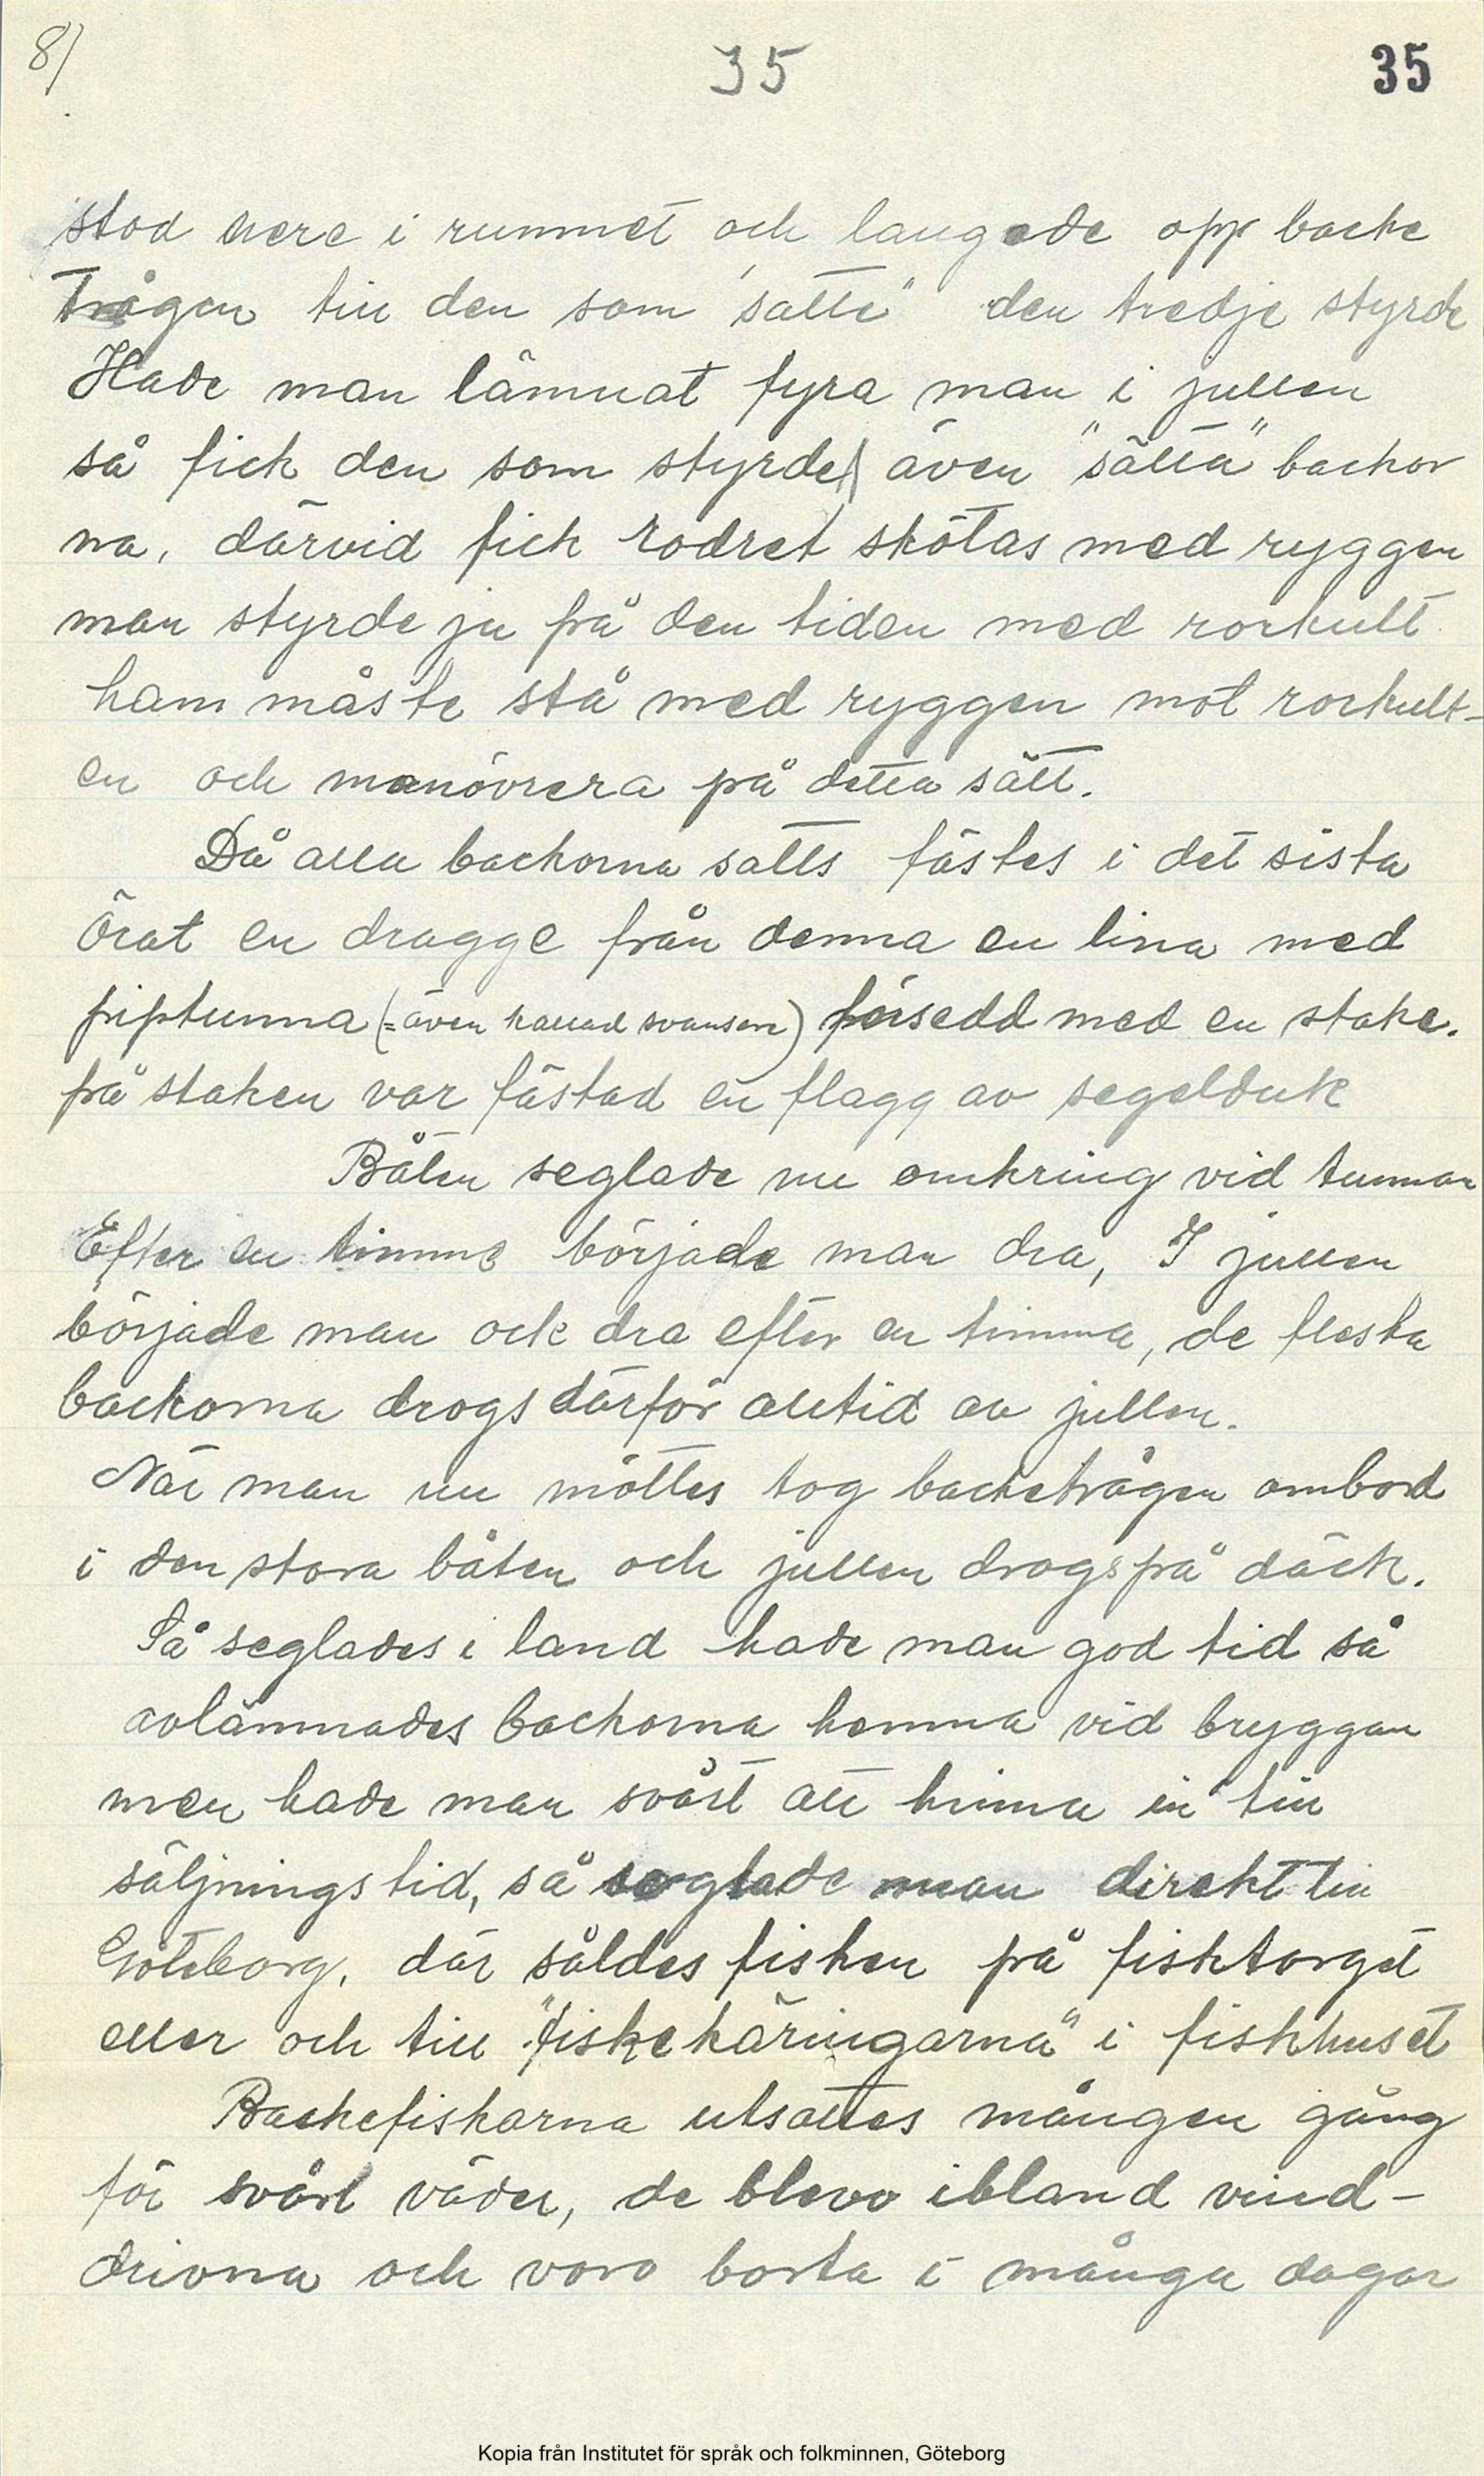 8/
35
35
stod nere i rummet och langade opp backe
trågen till den som "satte" den tredje styrde
Hade man lämnat fyra man i jullen
så fick den som styrde även "sätta" backor
na, därvid fick rodret skötas med ryggen
man styrde ju på den tiden med rorkult
han måste stå med ryggen mot rorkult-
en och manövrera på detta sätt.
Då alla backorna satts fästes i det sista
örat en dragge från denna en lina med
friptunna (= även kallad svansen) försedd med en stake.
på staken var fästad en flagg av segelduk
Båten seglade nu omkring vid tunnan
Efter en timme började man dra, I jullen
började man ock dra efter en timma, de flesta
backorna drogs därför alltid av jullen.
När man nu möttes tog backetrågen ombord
i den stora båten och jullen drogs på däck.
Så seglades i land hade man god tid så
avlämnades backorna hemma vid bryggan
men hade man svårt att hinna in till
säljningstid, så seglade man direkt till
Göteborg, där såldes fisken på fisktorget
eller och till "fiskekäringarna" i fiskhuset
Backefiskarna utsattes mången gång
för svårt väder, de blevo ibland vind-
drivna och voro borta i många dagar
Kopia från Institutet för språk och folkminnen, Göteborg